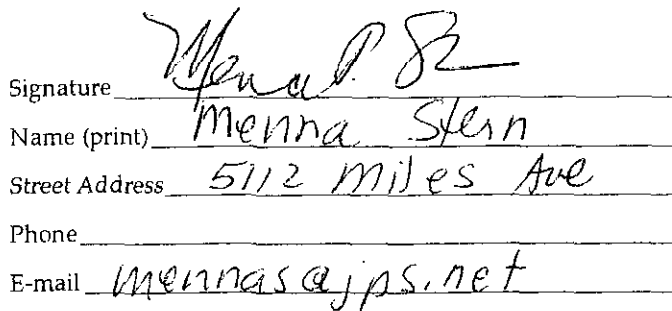 Signature Menna P. St
Name (print) Menna Stern
Street Address 5112 Miles Ave
Phone
E-mail mennas@jps.net